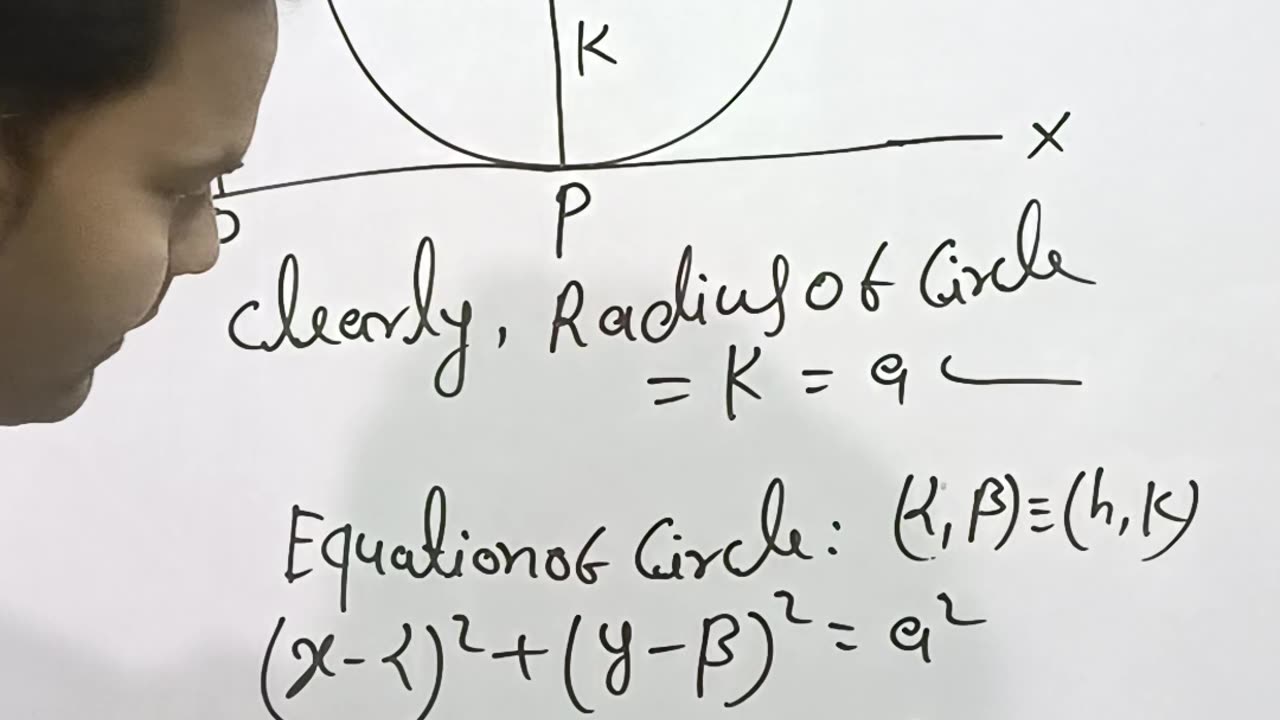 K
X
O
P
Clearly, Radius of Circle
= K = a
Equation of Circle: (α, β) ≡ (h, K)
(x-α)² + (y-β)² = a²